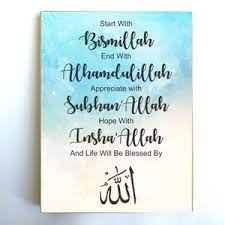 Start With
Bismillah
End With
Alhamdulillah
Appreciate with
SubhanʼAllah
Hope With
InshaʼAllah
And Life Will Be Blessed By
الله